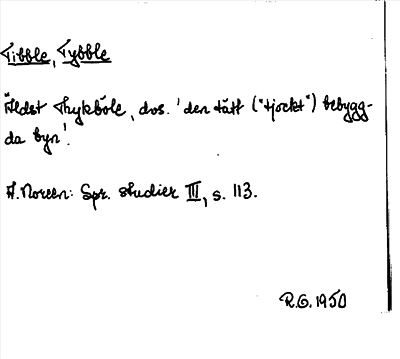 Tibble, Tybble
Äldst Thykböle, dvs. 'den tätt ("tjockt") bebygg-
da byn'.
A. Noreen: Spr. studier III, s. 113.
R.G. 1950